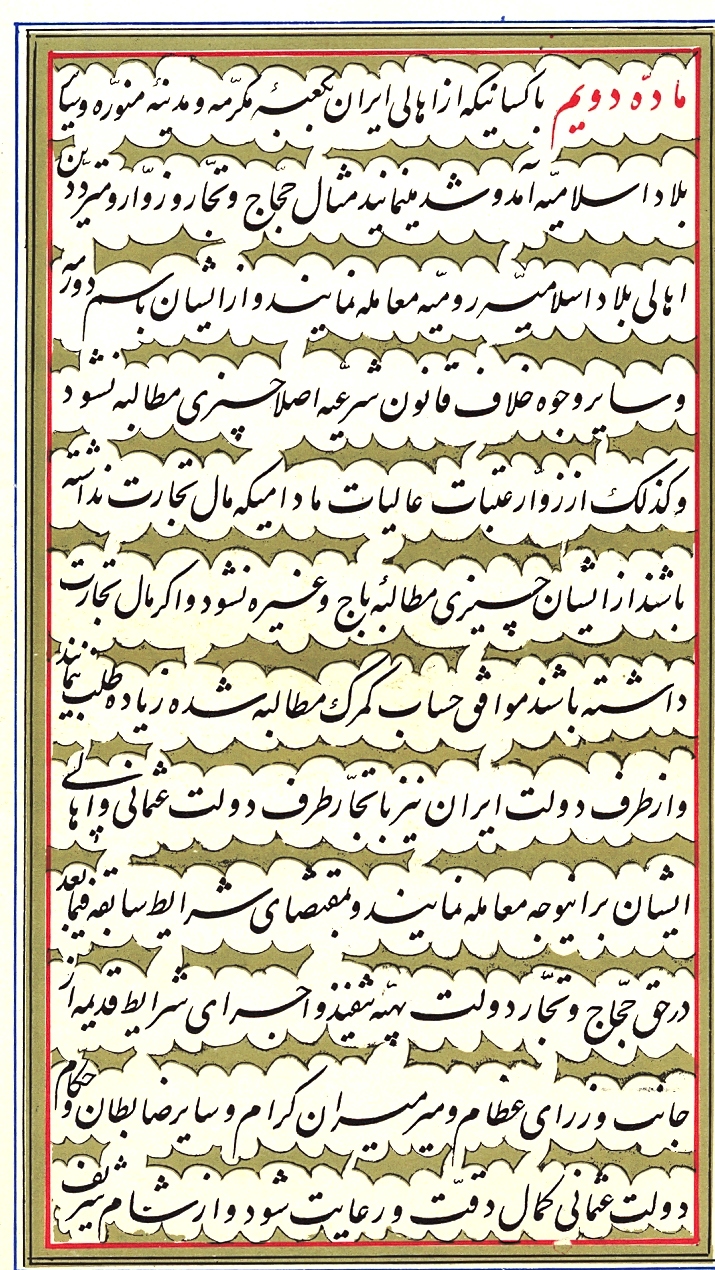 ماده دویم باکسانیکه از اهالی ایران بکعبهٔ مکرّمه و مدینهٔ منوّره و سایر
بلاد اسلامیّه آمد و شد مینمایند مثال حجّاج و تجّار و زوّار و متردّدین
اهالی بلاد اسلامیّه رومیّه معامله نمایند و از ایشان باسم دورمه
و سایر وجوه خلاف قانون شرعیّه اصلا چیزی مطالبه نشود
و کذلک از زوّار عتبات عالیات مادامیکه مال تجارت نداشته
باشند از ایشان چیزی مطالبهٔ باج و غیره نشود و اکر مال تجارت
داشته باشند موافق حساب کمرک مطالبه شده زیاده طلب ننمایند
و از طرف دولت ایران نیز با تجّار طرف دولت عثمانی و اهالی
ایشان براینوجه معامله نمایند و بمقتضای شرایط سابقه فیمابعد
در حق حجّاج و تجّار دولت بهیّه تنفیذ و اجرای شرایط قدیمه از
جانب وزرای عظام و میر میران کرام و سایر ضابطان و حکّام
دولت عثمانی کمال دقّت و رعایت شود و از شام شریف